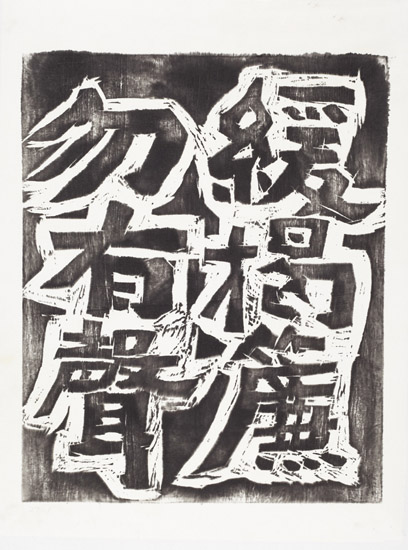 緩揭簾
勿有聲